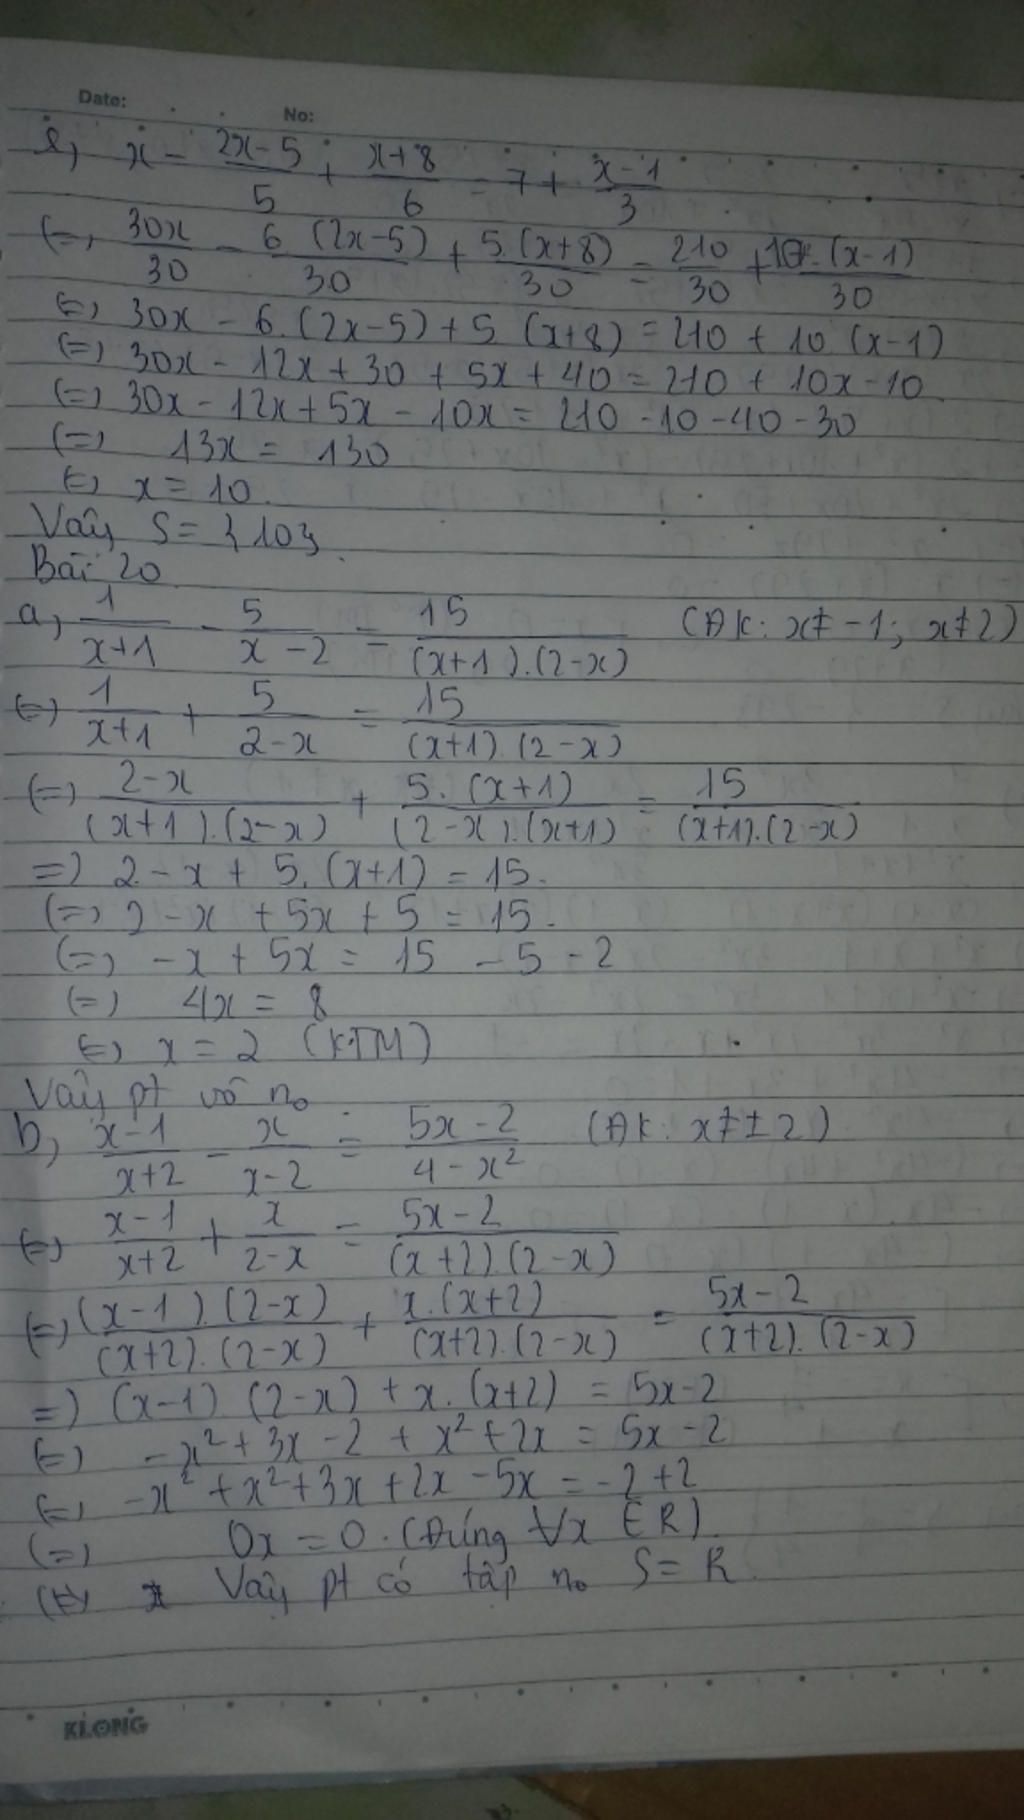 Date: No:
e, x - (2x-5)/5 + (x+8)/6 = 7 + (x-1)/3
(=) 30x/30 - 6.(2x-5)/30 + 5.(x+8)/30 = 210/30 + 10.(x-1)/30
(=) 30x - 6.(2x-5) + 5.(x+8) = 210 + 10.(x-1)
(=) 30x - 12x + 30 + 5x + 40 = 210 + 10x - 10
(=) 30x - 12x + 5x - 10x = 210 - 10 - 40 - 30
(=) 13x = 130
(=) x = 10.
Vậy S = {10}.
Bài 20
a, 1/(x+1) - 5/(x-2) = 15/((x+1).(2-x)) (ĐK: x ≠ -1; x ≠ 2)
(=) 1/(x+1) + 5/(2-x) = 15/((x+1).(2-x))
(=) (2-x)/((x+1).(2-x)) + 5.(x+1)/((2-x).(x+1)) = 15/((x+1).(2-x))
=) 2 - x + 5.(x+1) = 15.
(=) 2 - x + 5x + 5 = 15.
(=) -x + 5x = 15 - 5 - 2
(=) 4x = 8
(=) x = 2 (KTM)
Vậy pt vô no
b, (x-1)/(x+2) - x/(x-2) = (5x-2)/(4-x²) (ĐK: x ≠ ±2)
(=) (x-1)/(x+2) + x/(2-x) = (5x-2)/((x+2).(2-x))
(=) (x-1).(2-x)/((x+2).(2-x)) + x.(x+2)/((x+2).(2-x)) = (5x-2)/((x+2).(2-x))
=) (x-1).(2-x) + x.(x+2) = 5x-2
(=) -x² + 3x - 2 + x² + 2x = 5x - 2
(=) -x² + x² + 3x + 2x - 5x = -2 + 2
(=) 0x = 0. (Đúng ∀x ∈ R)
(=) Vậy pt có tập no S = R.
KLONG